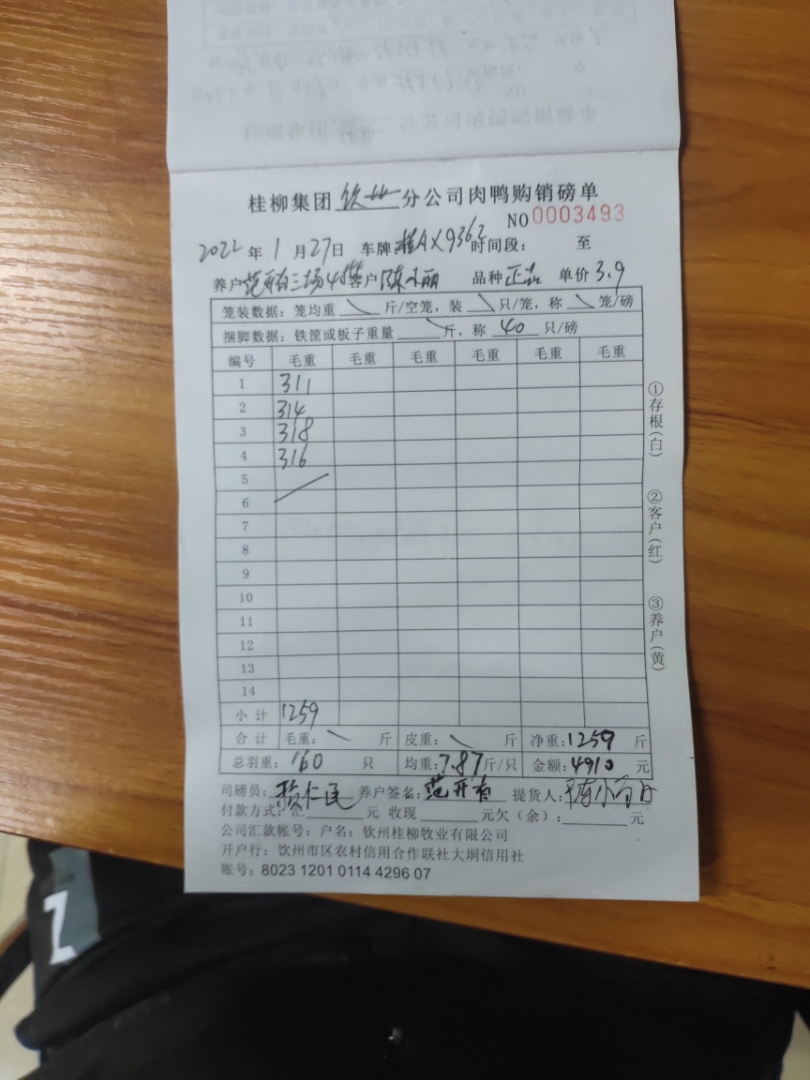 桂柳集团 钦州 分公司肉鸭购销磅单
NO 0003493
2022 年 1 月 27 日 车牌 桂AX9362 时间段： 至
养户 范开有三场4棚 客户 陈小丽 品种 正品 单价 3.9
笼装数据：笼均重 斤/空笼，装 只/笼，称 笼/磅
捆脚数据：铁筐或板子重量 斤，称 40 只/磅
编号 毛重 毛重 毛重 毛重 毛重 毛重
1 311
2 314
3 318
4 316
5
6
7
8
9
10
11
12
13
14
小计 1259
合计 毛重： 斤 皮重： 斤 净重：1259 斤
总羽重：160 只 均重：7.87 斤/只 金额：4910 元
司磅员： 仁民 养户签名：范开有 提货人：
付款方式： 元 收现 元欠（余）： 元
公司汇款帐号：户名：钦州桂柳牧业有限公司
开户行：钦州市区农村信用合作联社大垌信用社
账号：8023 1201 0114 4296 07
①存根（白）
②客户（红）
③养户（黄）